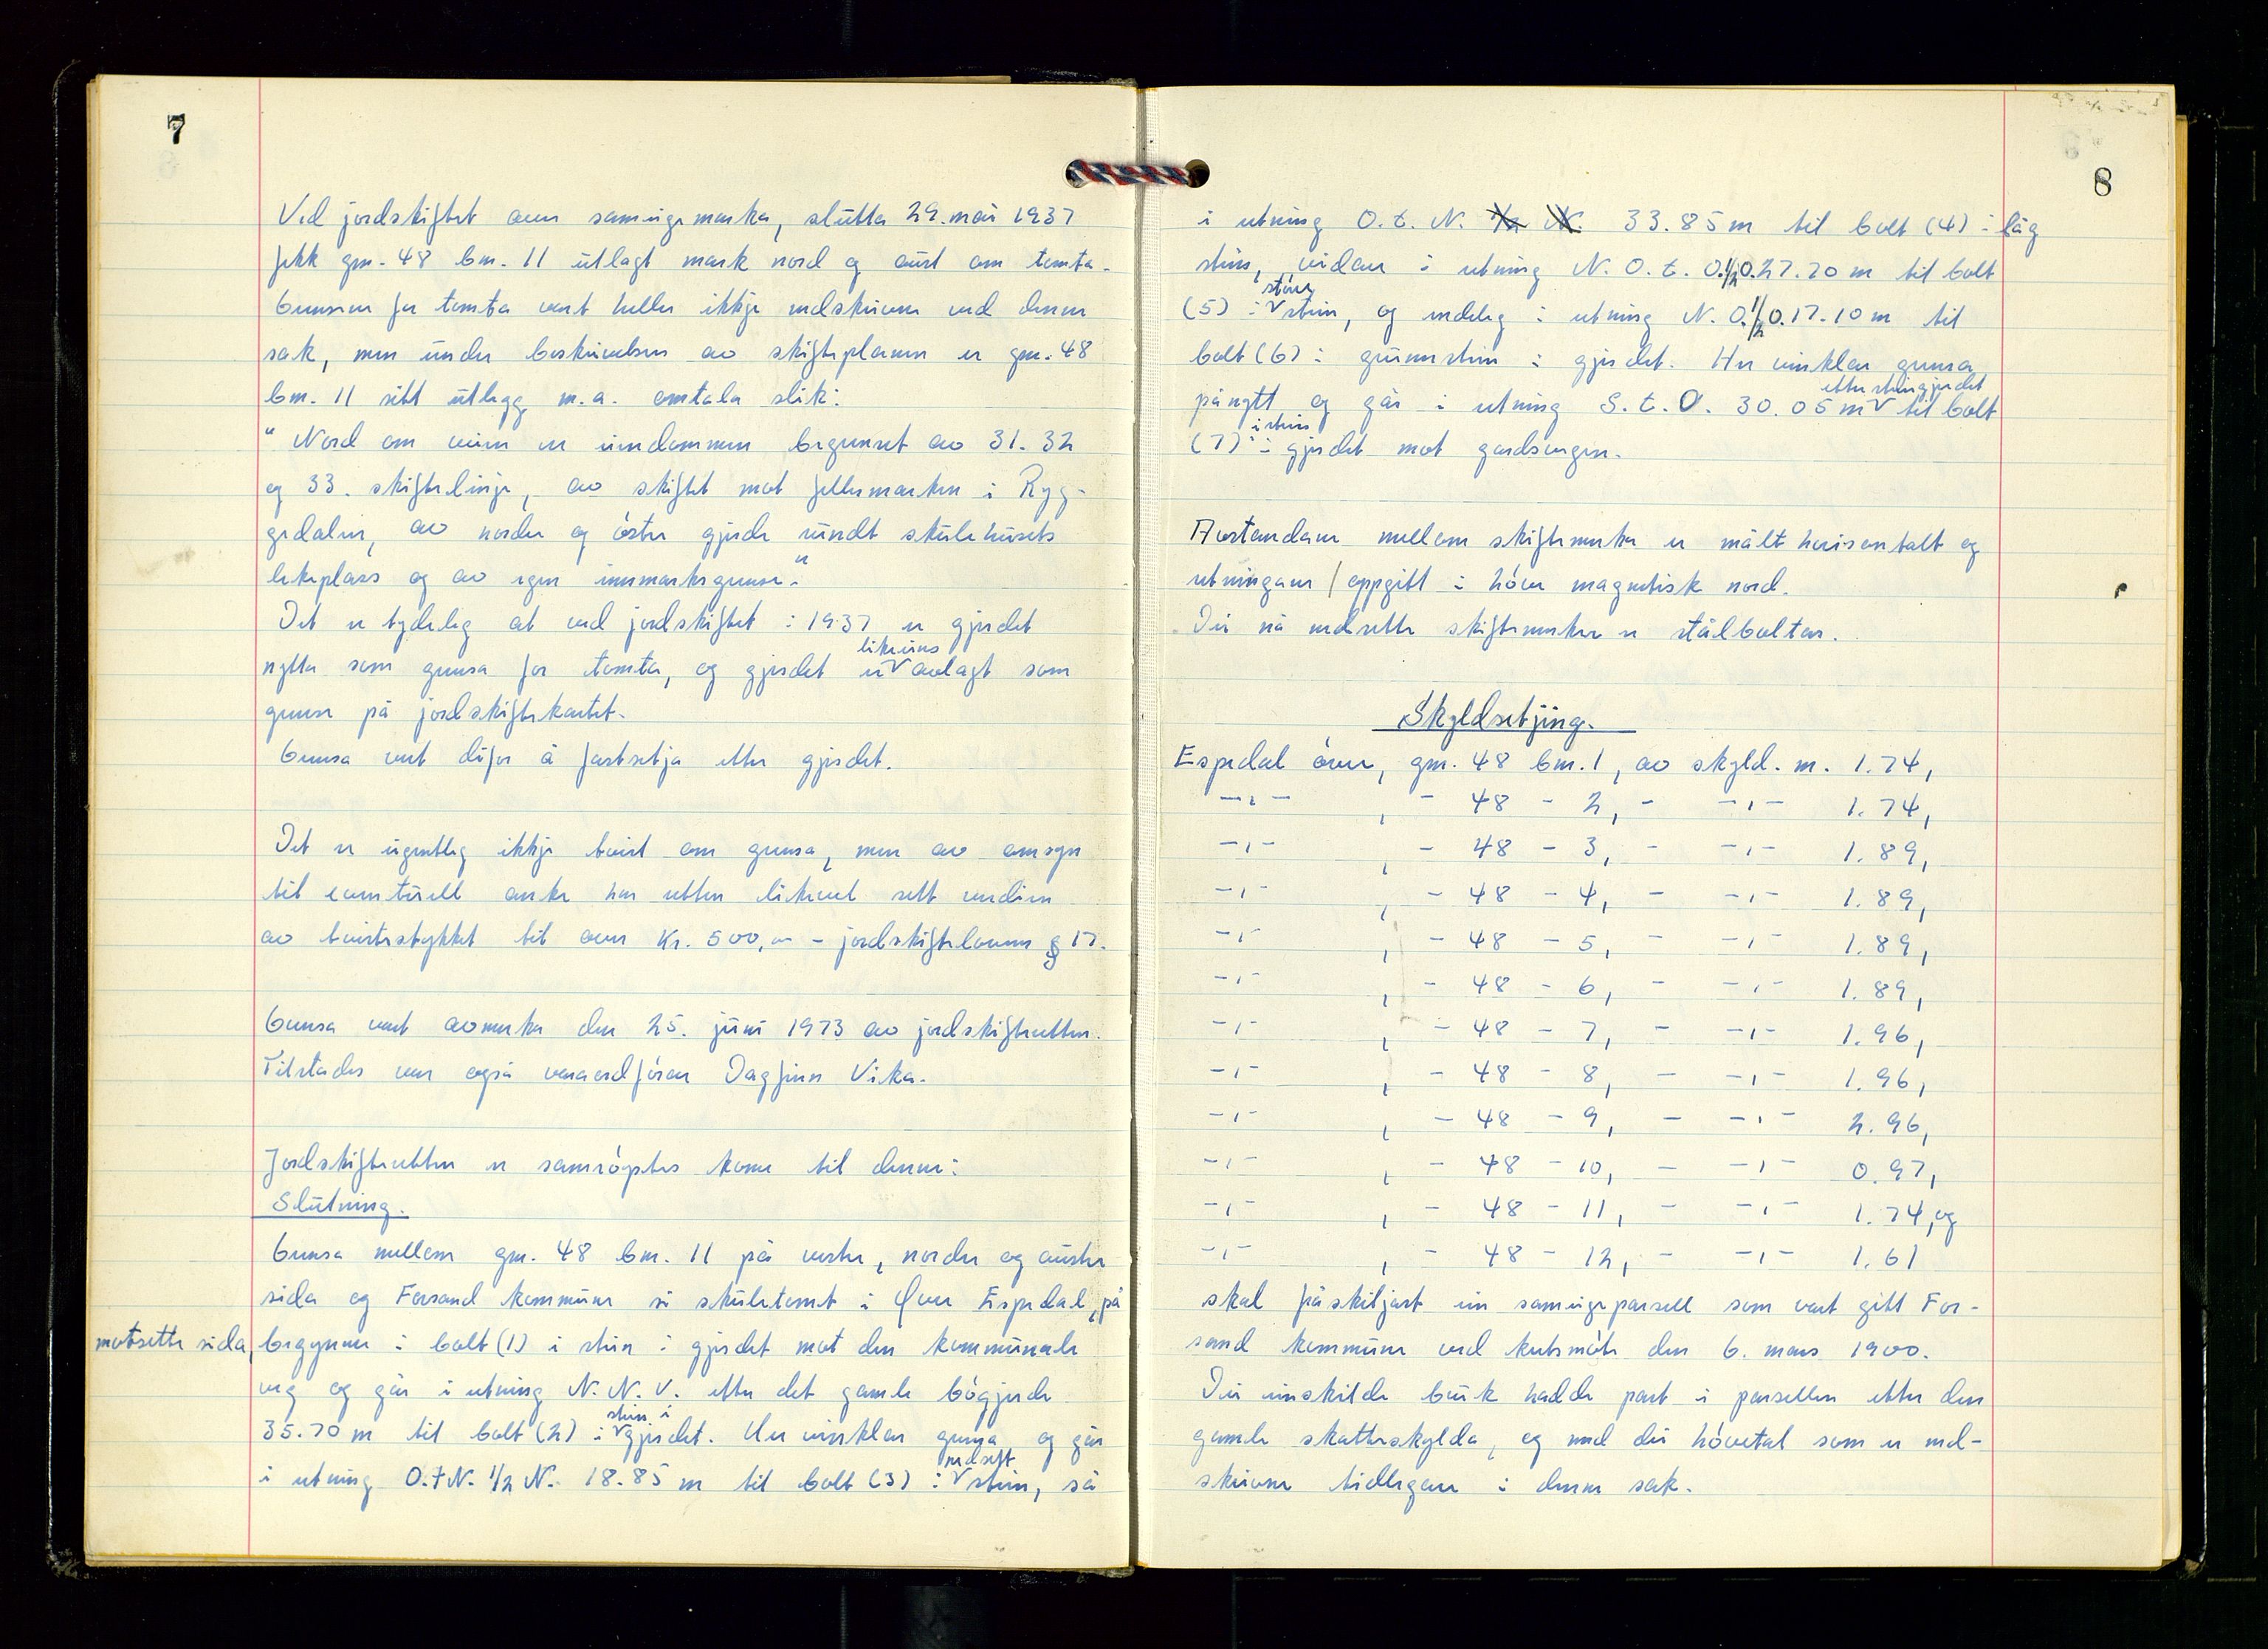 7
Ved jordskiftet over sameigemarka, slutta 29. mai 1937
fekk gnr. 48 bnr. 11 utlagt mark nord og aust om tomta.
Grensene for tomta vart heller ikkje nedskrivne ved denne
sak, men under beskrivelsen av skifteplanen er gnr. 48
bnr. 11 sitt utlegg m.a. omtala slik:
"Nord om veien er eiendommen begrenset av 31. 32
og 33. skiftelinje, av skiftet mot fellesmarken i Ryg-
gedalen, av nordre og østre gjerde rundt skulehusets
lekeplass og av egen innmarksgrense."
Det er tydeleg at ved jordskiftet i 1937 er gjerdet
nytta som grensa for tomta, og gjerdet er likeeins avlagt som
grense på jordskiftekartet.
Grensa vert difor å fastsetja etter gjerdet.
Det er eigentleg ikkje tvist om grensa, men av omsyn
til eventuell anke har retten likevel sett verdien
av tvistestykket til over Kr. 500,00 - jordskiftelovens § 17.
Grensa vart avmerka den 25. juni 1973 av jordskifteretten.
Tilstades var også varaordførar Dagfinn Vika.
Jordskifteretten er samrøystes kome til denne:
Slutning.
Grensa mellom gnr. 48 bnr. 11 på vestre, nordre og austre
sida og Forsand kommune si skuletomt i Øvre Espedal, på
motsette sida, begynner i bolt (1) i stein i gjerdet mot den kommunale
veg og går i retning N. N. V. etter det gamle bøgjerde
35.70 m til bolt (2) i stein i gjerdet. Her vinklar grensa og går
i retning O.t.N. 1/2 N. 18.85 m til bolt (3) i nedsett stein, så
8
i retning O. t. N. 33.85 m til bolt (4) i låg
stein, vidare i retning N. O. t. O. 1/2 O. 27.20 m til bolt
(5) i stor stein, og endeleg i retning N. O. 1/2 O. 17.10 m til
bolt (6) i grunnstein i gjerdet. Her vinklar grensa
på nytt og går i retning S. t. O. 30.05 m etter steingjerdet til bolt
(7) i stein i gjerdet mot gardsvegen.
Avstandane mellom skiftemerka er målt horisontalt og
retningane oppgitt i høve magnetisk nord.
Dei nå nedsette skiftemerker er stålboltar.
Skyldsetjing.
Espedal øvre, gnr. 48 bnr. 1, av skyld. m. 1.74,
-"- , - 48 - 2, - -"- 1.74,
-"- , - 48 - 3, - -"- 1.89,
-"- , - 48 - 4, - -"- 1.89,
-"- , - 48 - 5, - -"- 1.89,
-"- , - 48 - 6, - -"- 1.89,
-"- , - 48 - 7, - -"- 1.96,
-"- , - 48 - 8, - -"- 1.96,
-"- , - 48 - 9, - -"- 2.96,
-"- , - 48 - 10, - -"- 0.97,
-"- , - 48 - 11, - -"- 1.74, og
-"- , - 48 - 12, - -"- 1.61
skal fråskiljast ein sameigeparsell som vart gitt For-
sand kommune ved kretsmøte den 6. mars 1900.
Dei einskilde bruk hadde part i parsellen etter den
gamle skatteskylda, og med dei høvetal som er ned-
skrivne tidlegare i denne sak.